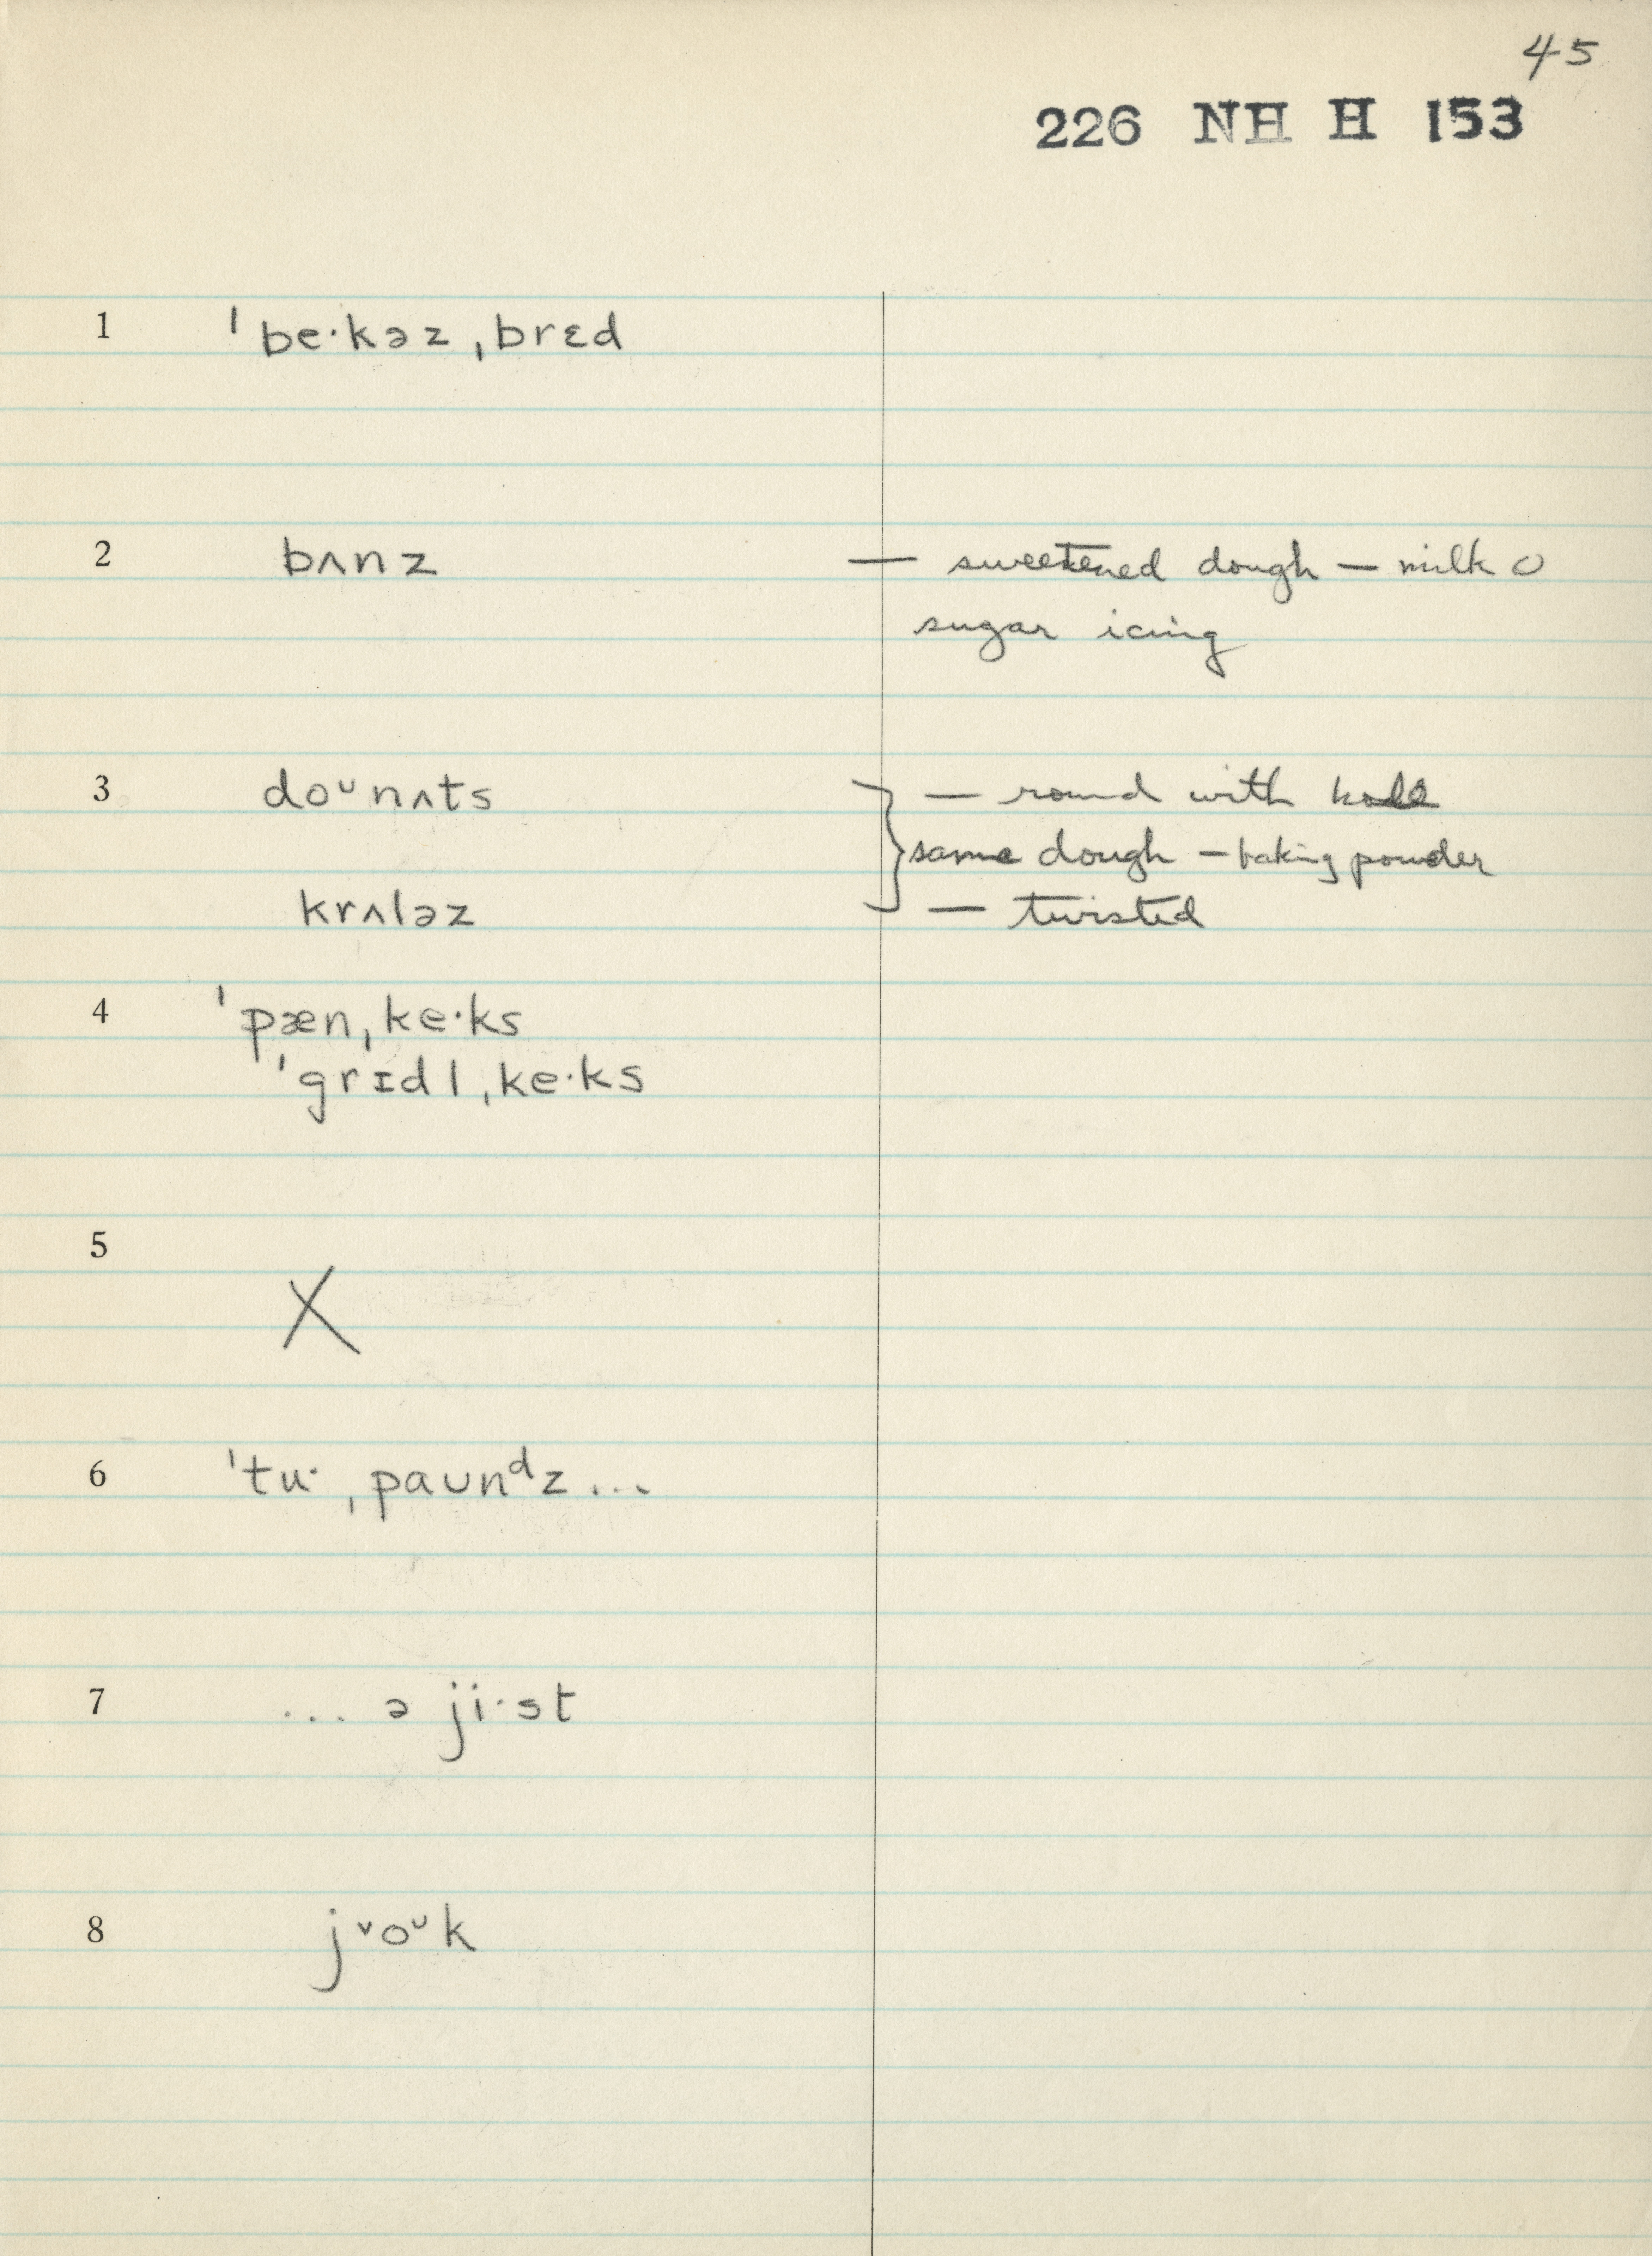 45
226 NH H 153
1 ˈbe·kəz ˌbrɛd
2 bʌnz — sweetened dough — milk
sugar icing
3 doᴜnʌts — round with hole
same dough — baking powder
krʌləz — twisted
4 ˈpæn ˌke·ks
ˈgrɪdl ˌke·ks
5 X
6 ˈtu· ˌpaᴜnᵈz ...
7 ... ə ji·st
8 jᵛoᶸk